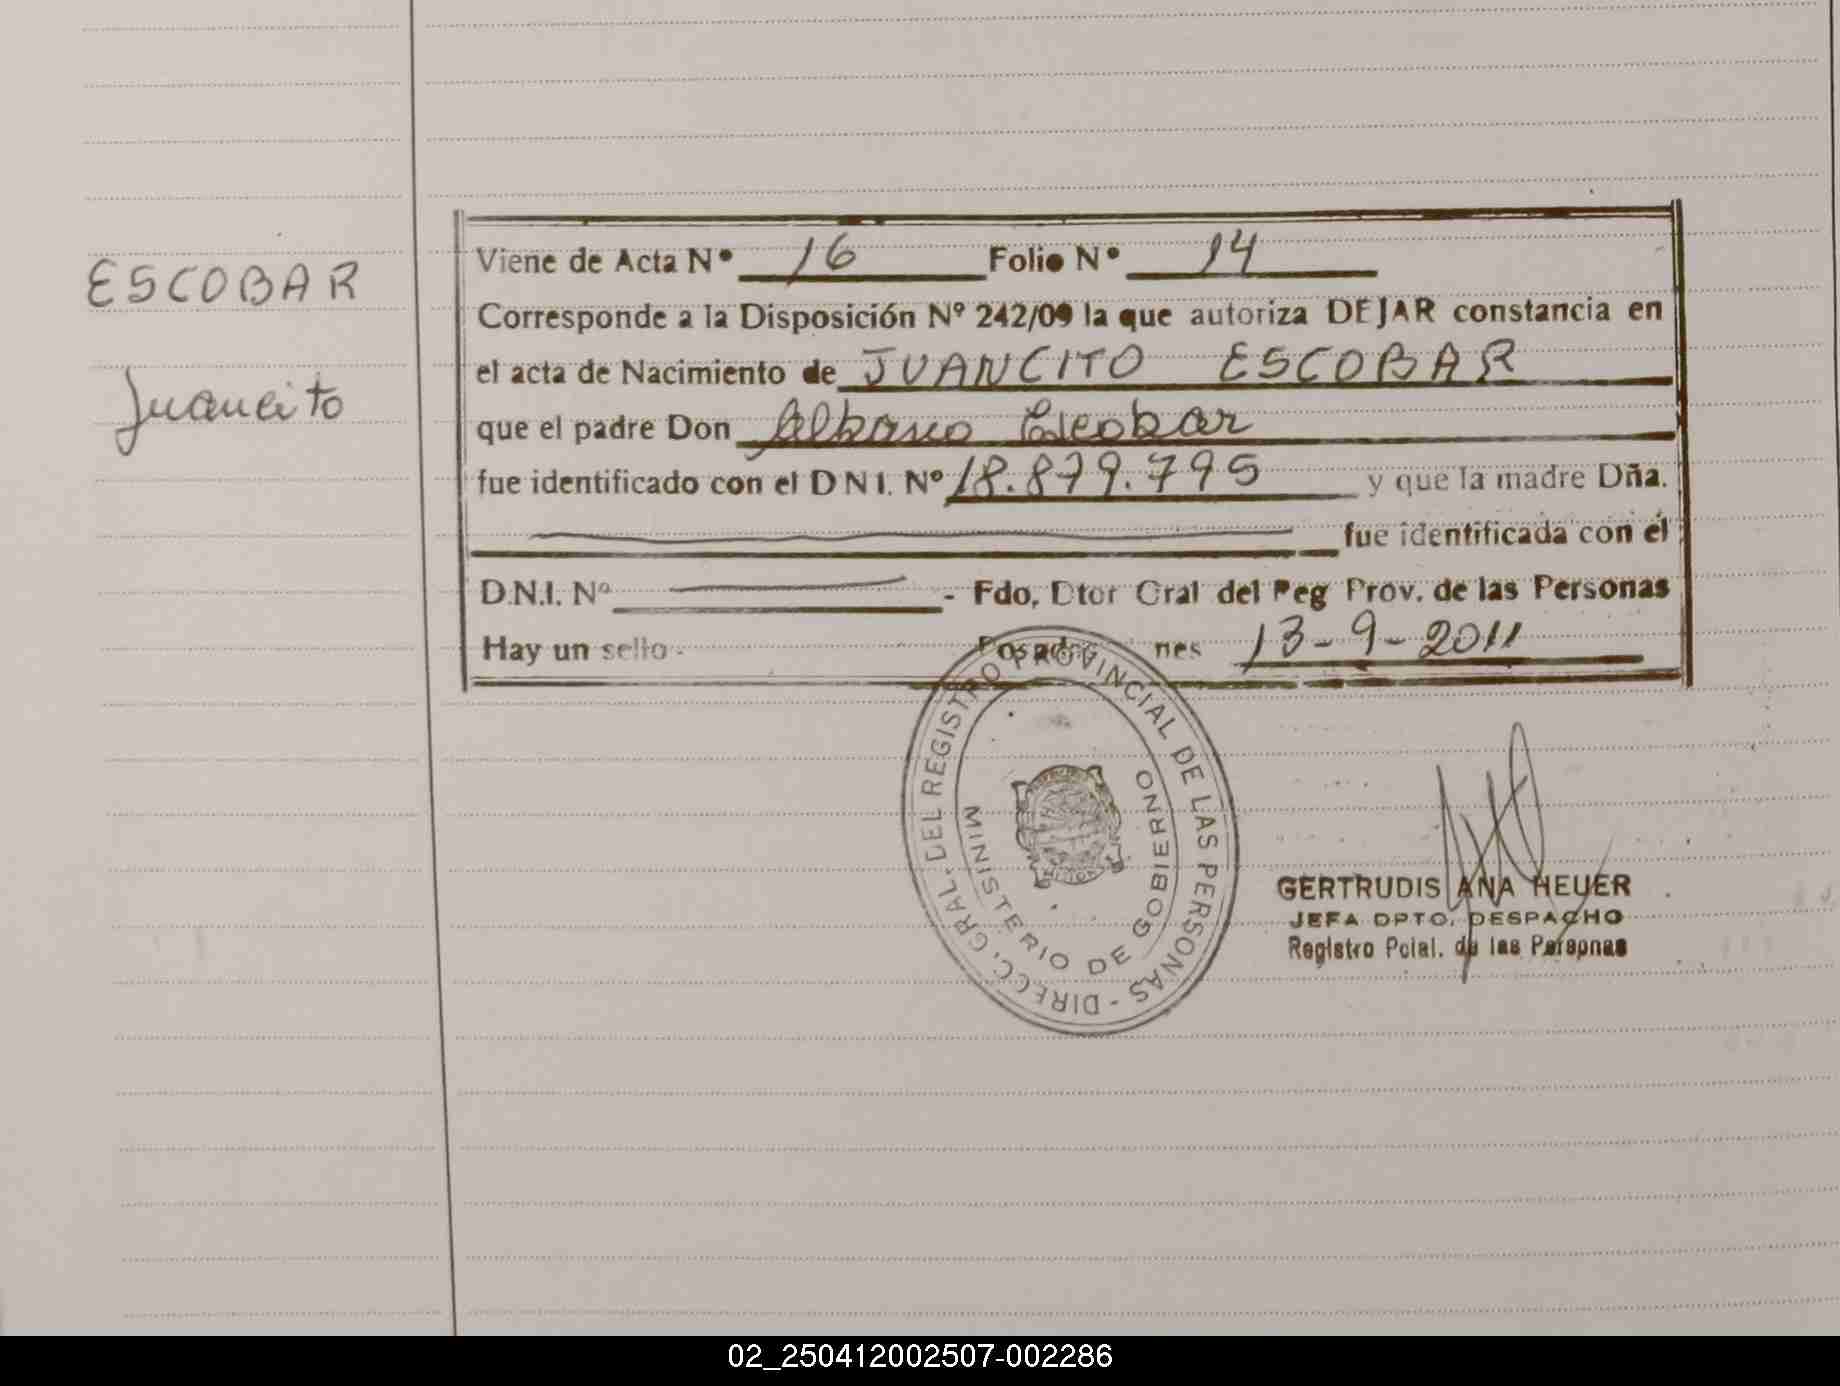 ESCOBAR
Juancito
Viene de Acta Nº 16 Folio Nº 14
Corresponde a la Disposición Nº 242/09 la que autoriza DEJAR constancia en
el acta de Nacimiento de JUANCITO ESCOBAR
que el padre Don Albano Escobar
fue identificado con el D N I. Nº 18.879.795 y que la madre Dña.
fue identificada con el
D.N.I. Nº - Fdo, Dtor Gral del Reg Prov. de las Personas
Hay un sello - Posadas nes 13-9-2011
DIRECC. GRAL. DEL REGISTRO PROVINCIAL DE LAS PERSONAS -
MINISTERIO DE GOBIERNO
GERTRUDIS ANA HEUER
JEFA DPTO. DESPACHO
Registro Pcial. de las Personas
02_250412002507-002286